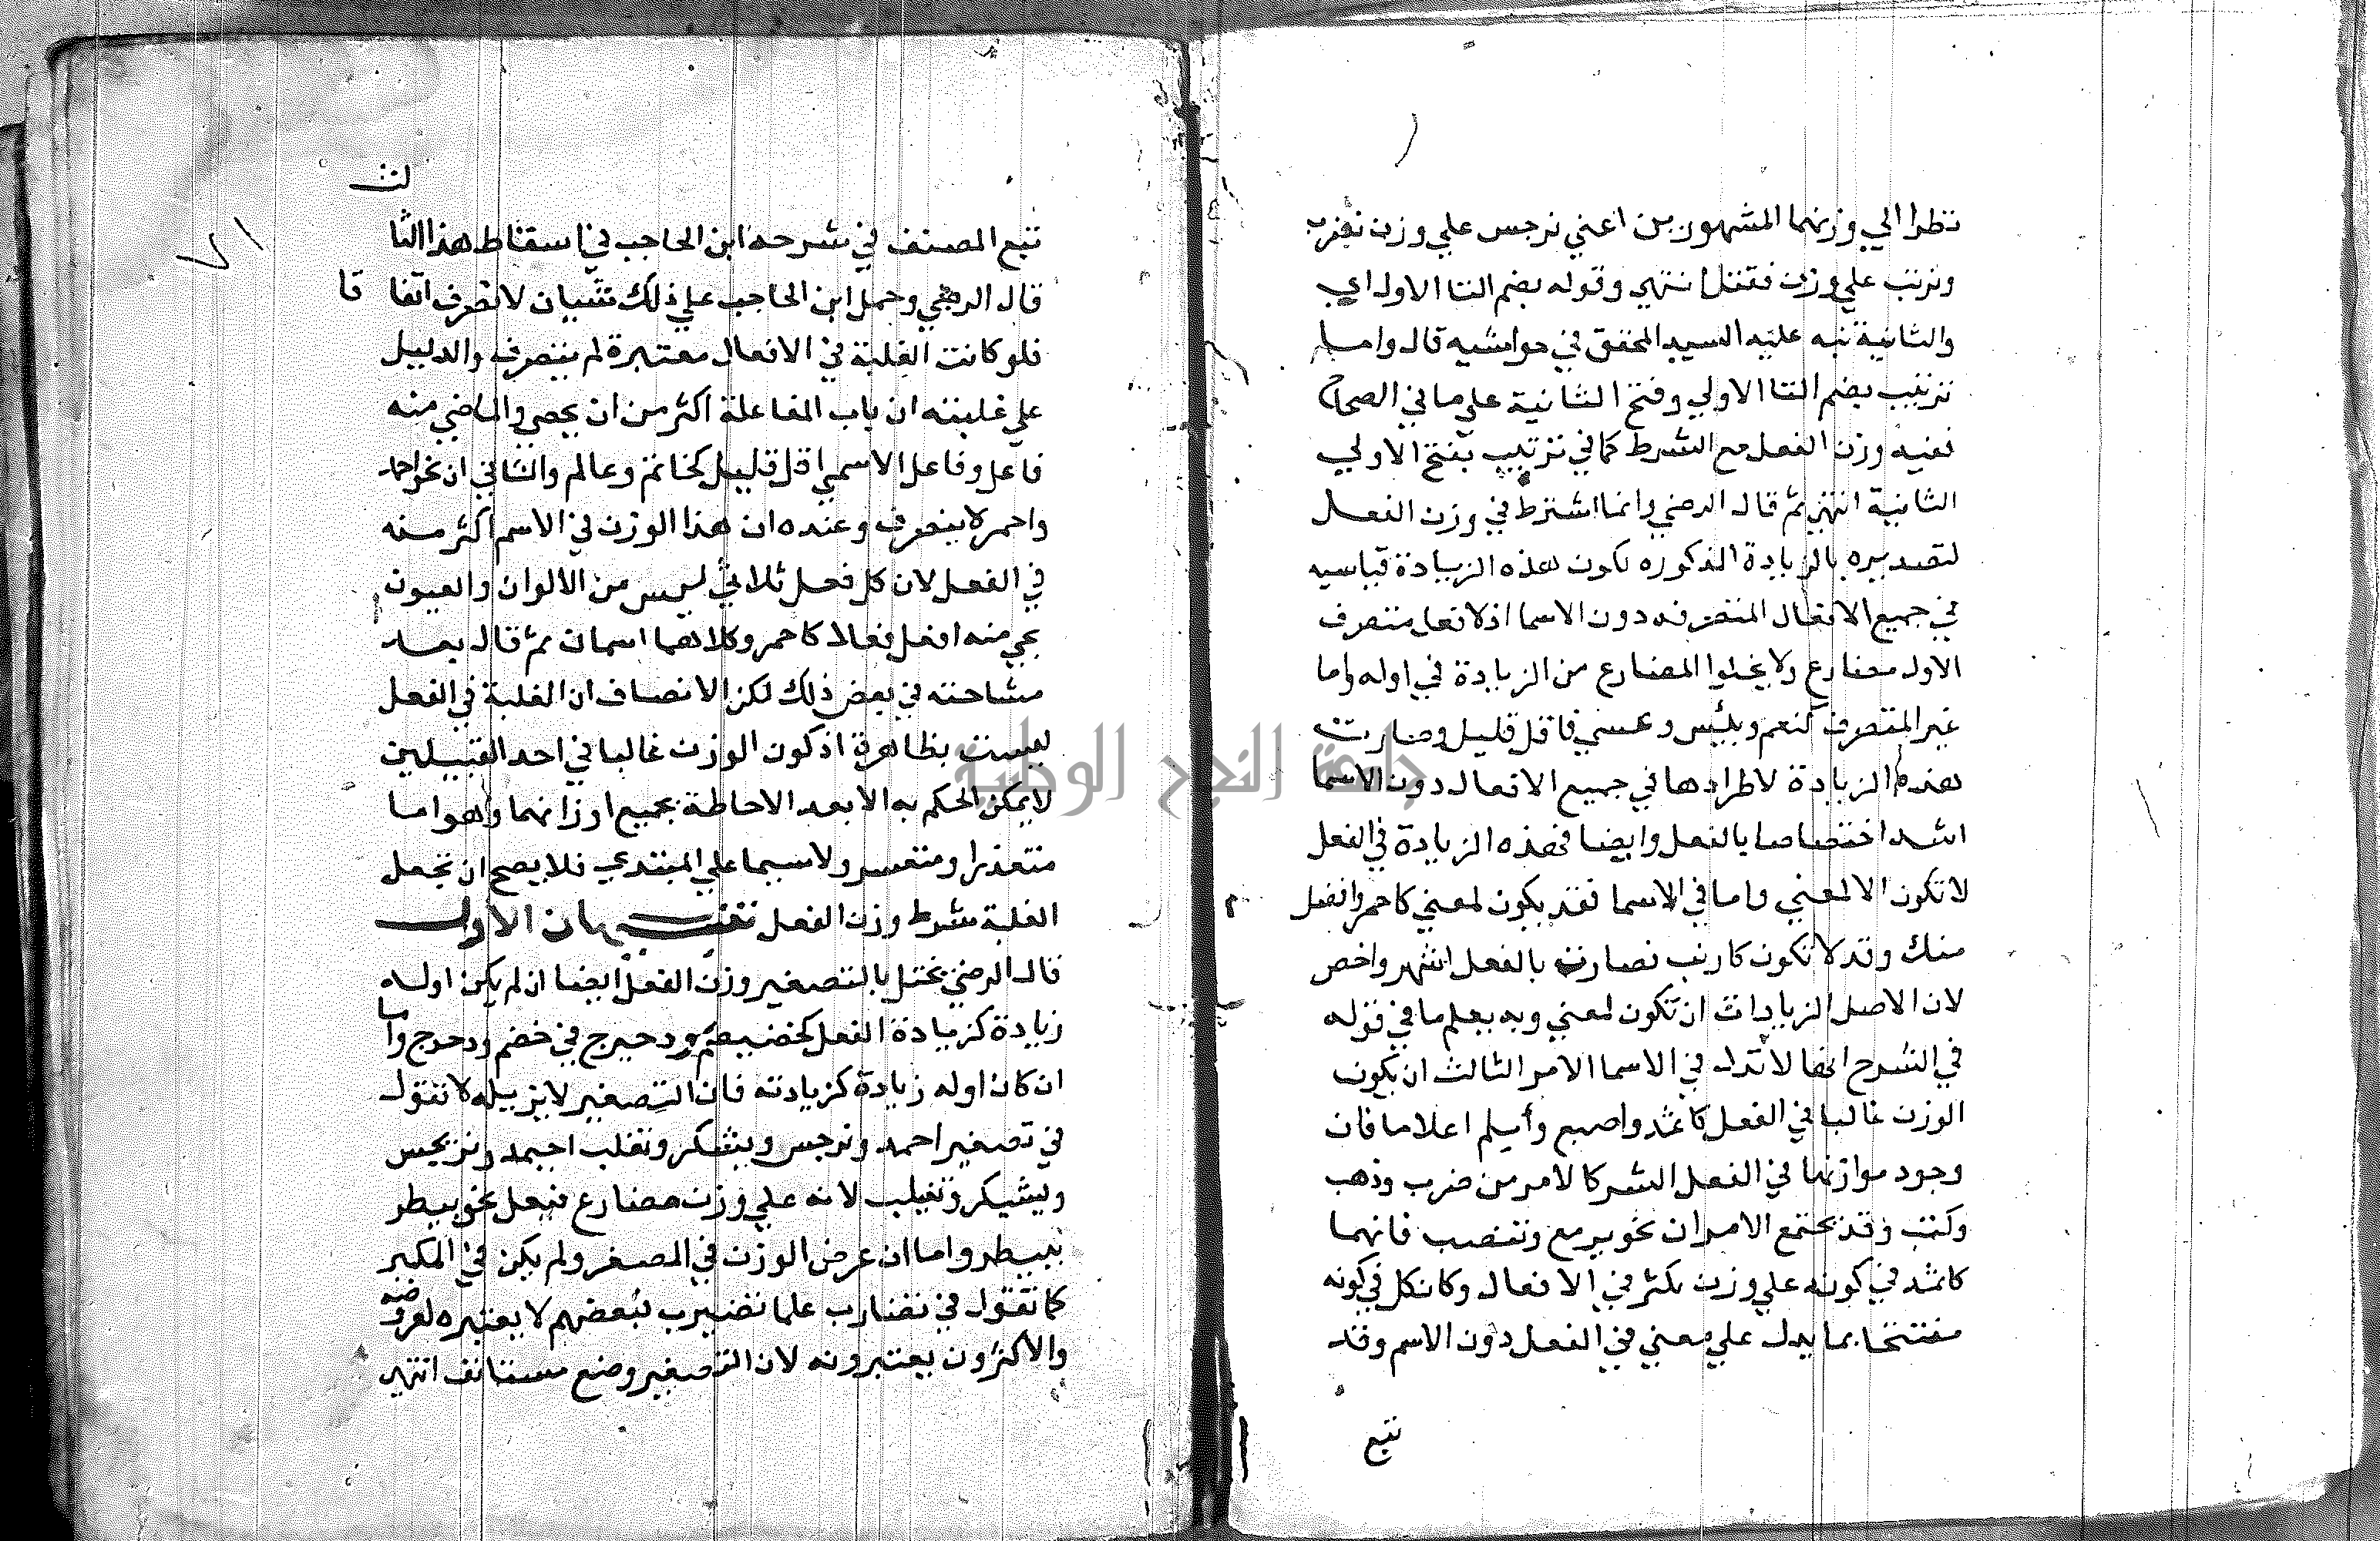 نظرا الي وزنهما المشهورين اعني نرجس علي وزن نضرب
وترتب علي وزن فتنقل انتهي وقوله بضم التا الاولي اي
والثانية نبه عليه السيد المحقق في حواشيه قال واما
ترتب بضم التا الاولي وفتح الثانية علي ما في الصحاح
ففيه وزن الفعل مع الشرط كما في ترتب بفتح الاولي
الثانية انتهي ثم قال الرضي وانما اشترط في وزن الفعل
لتصديره بالزيادة المذكوره لكون هذه الزيادة قياسيه
في جميع الافعال المتصرفه دون الاسما اذ لا فعل متصرف
الاوله مضارع ولا يخلوا المضارع من الزيادة في اوله واما
غير المتصرف كنعم وبئس وعسي فاقل قليل وصارت
هذه الزيادة لاطرادها في جميع الافعال دون الاسما
اشد اختصاصا بالفعل وايضا فهذه الزيادة في الفعل
لا تكون الا لمعني واما في الاسما فقد يكون لمعني كاحمر وافضل
منك وقد لا تكون كارنب فصارت بالفعل اشهر واخص
لان الاصل الزيادات ان تكون لمعني وبه يعلم ما في قوله
في الشرح انها لا تدل في الاسما الامر الثالث ان يكون
الوزن غالبا في الفعل كاثمد واصبع وأبلم اعلاما فان
وجود موازنها في الفعل اكثر كالامر من ضرب وذهب
وكتب وقد يجتمع الامران نحو يرمع وتنضب فانهما
كاثمد في كونه علي وزن يكثر في الافعال وكافكل في كونه
مفتتحا بما يدل علي معني في الفعل دون الاسم وقد
تبع
تبع المصنف في شرحه ابن الحاجب في اسقاط هذا الثا
لث
قال الرضي وحمل ابن الحاجب علي ذلك شيان لا نصرف اتفا قا
فلو كانت الغلبة في الافعال معتبرة لم ينصرف والدليل
علي غلبته ان باب المفاعلة اكثر من ان يحصي والماضي منه
فاعل وفاعل الاسمي اقل قليل كخاتم وعالم والثاني ان نحو احمد
واحمر لا ينصرف وعنده ان هذا الوزن في الاسم اكثر منه
في الفعل لان كل فعل ثلاثي ليس من الالوان والعيون
يجي منه افعل فعلا كاحمر وكلاهما اسمان ثم قال بعد
مشاحته في بعض ذلك لكن الانصاف ان الغلبة في الفعل
ليست بظاهرة اذ كون الوزن غالبا في احد القبيلين
لا يمكن الحكم به الا بعد الاحاطة بجميع اوزانهما وهو اما
متعذر او متعسر ولا سيما علي المبتدي فلا يصح ان تجعل
الغلبة شرط وزن الفعل تنبيهان الاول
قال الرضي يختل بالتصغير وزن الفعل ايضا ان لم يكن اوله
زيادة كزيادة الفعل كخضيضم ودحيرج في خضم ودحرج واما
ان كان اوله زيادة كزيادته فان التصغير لا يزيله لا تقول
في تصغير احمد ونرجس ويشكر وتغلب احيمد ونريجس
ويشيكر وتغيلب لانه علي وزن مضارع فيعل نحو بيطر
يبيطر واما ان عرض الوزن في المصغر ولم يكن في المكبر
كما تقول في تضارب علما تضيرب فبعضهم لا يعتبره لعروضه
والاكثرون يعتبرونه لان التصغير وضع مستانف انتهي